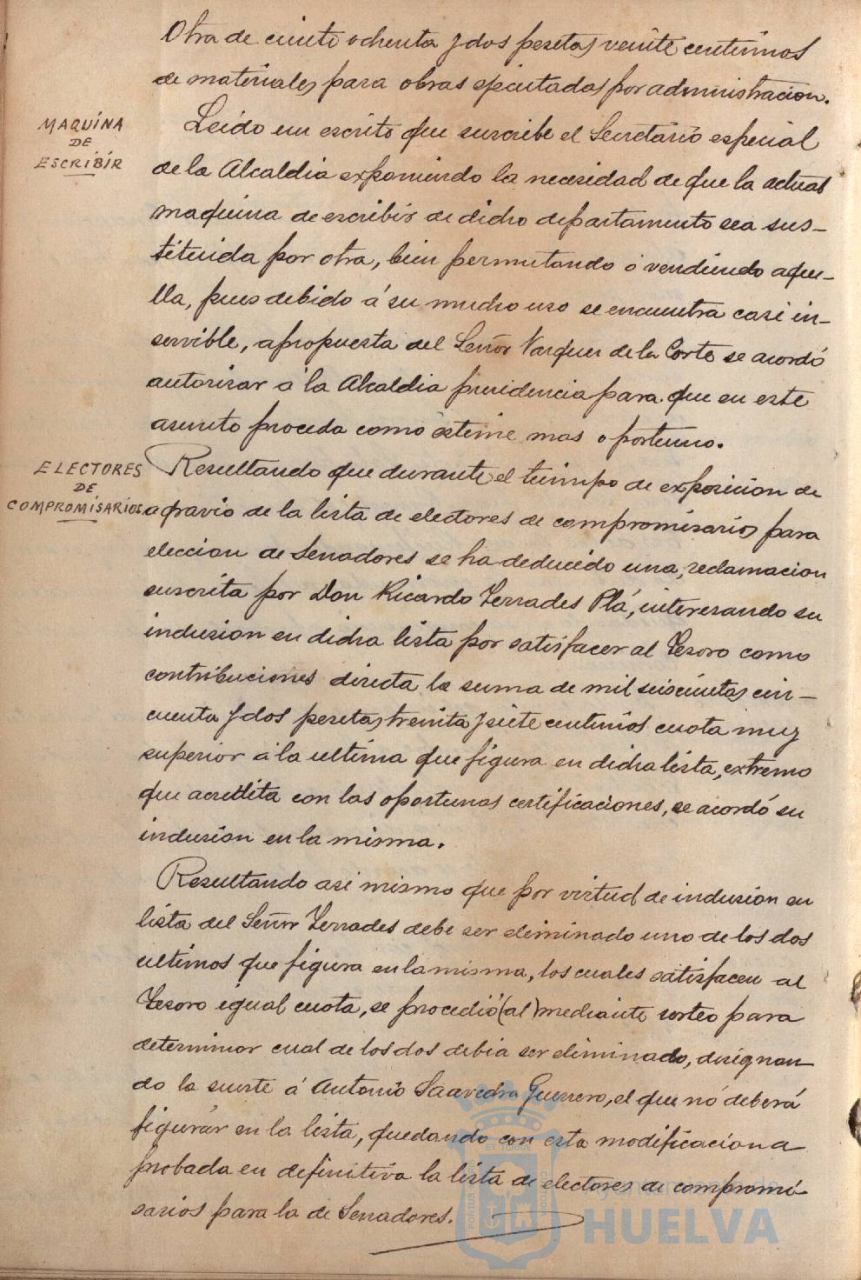 Otra de ciento ochenta y dos pesetas veinte centimos
de materiales para obras ejecutadas por administracion.
MAQUINA
DE
ESCRIBIR
Leido un escrito que suscribe el Secretario especial
de la Alcaldia exponiendo la necesidad de que la actual
maquina de escribir de dicho departamento sea sus-
tituida por otra, bien permutando ó vendiendo aque-
lla, pues debido á su mucho uso se encuentra casi in-
servible, a propuesta del Señor Vazquez de la Corte se acordó
autorizar á la Alcaldia presidencia para que en este
asunto proceda como estime mas oportuno.
ELECTORES
DE
COMPROMISARIOS
Resultando que durante el tiempo de exposicion de
agravio de la lista de electores de compromisarios para
eleccion de Senadores se ha deducido una, reclamacion
suscrita por Don Ricardo Terrades Plá, interesando su
inclusion en dicha lista por satisfacer al Tesoro como
contribuciones directa la suma de mil seiscientas cin-
cuenta y dos pesetas treinta y siete centimos cuota muy
superior á la ultima que figura en dicha lista, extremo
que acredita con las oportunas certificaciones, se acordó su
inclusion en la misma.
Resultando asi mismo que por virtud de inclusion en
lista del Señor Terrades debe ser eliminado uno de los dos
ultimos que figura en la misma, los cuales satisfacen al
Tesoro igual cuota, se procedió (al) mediante sorteo para
determinar cual de los dos debia ser eliminado, designan-
do la suerte á Antonio Saavedra Guerrero, el que no deberá
figurar en la lista, quedando con esta modificacion a
probada en definitiva la lista de electores de compromi-
sarios para la de Senadores.
Ayuntamiento de
HUELVA